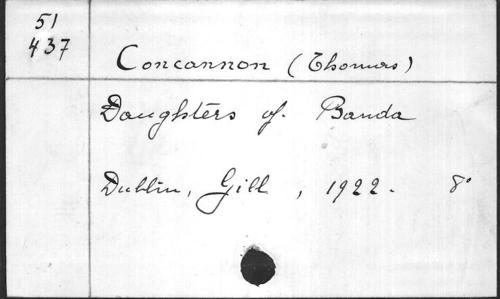 51
437
Concannon (Thomas)
Daughters of. Banda
Dublin, Gill, 1922. 8°